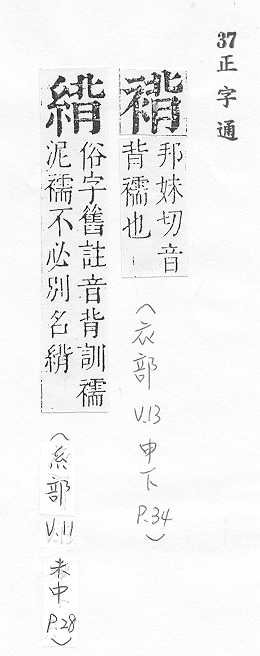 37 正字通
褙
邦妹切音
背襦也
(衣部 V.13 申下 P.34)
俗字舊註音背訓襦
泥襦不必別名
(糸部 V.11 未中 P.28)